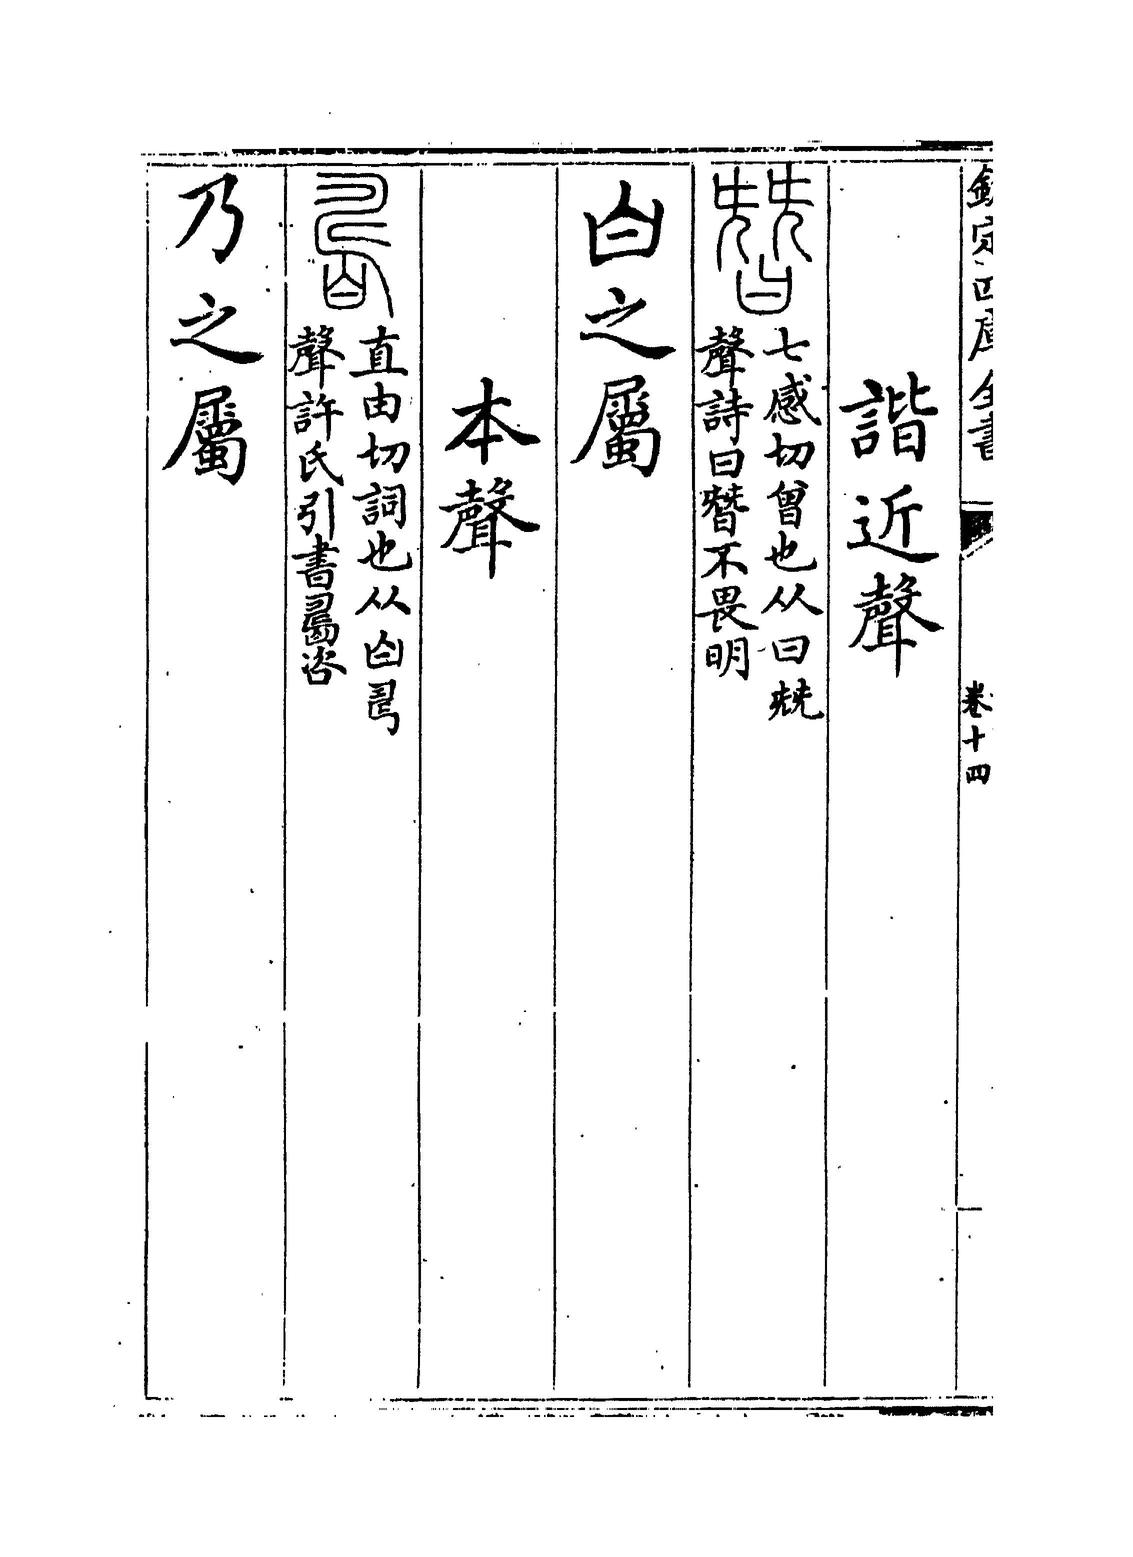 欽定四庫全書
卷十四
諧近聲
朁 七感切曾也从曰兟
聲詩曰朁不畏明
白之屬
本聲
直由切詞也从白
聲許氏引書咨
乃之屬